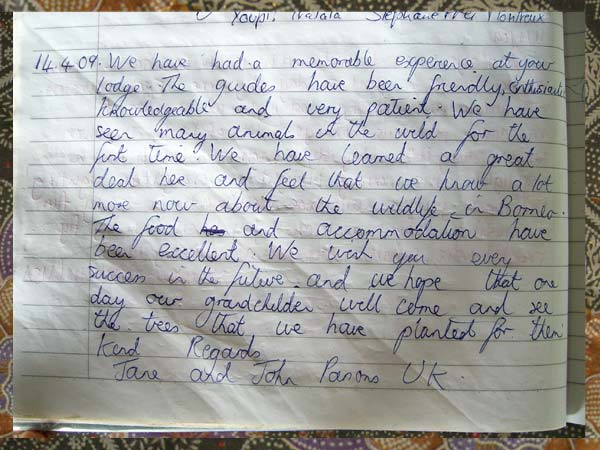 Youpi,
14.4.09. We have had a memorable experience at your
lodge. The guides have been friendly, enthusiastic
knowledgeable and very patient. We have
seen many animals in the wild for the
first time. We have learned a great
deal here and feel that we know a lot
more now about the wildlife in Borneo.
The food and accommodation have
been excellent. We wish you every
success in the future and we hope that one
day our grandchilden will come and see
the trees that we have planted for them
Kind Regards
Jane and John Parsons UK.